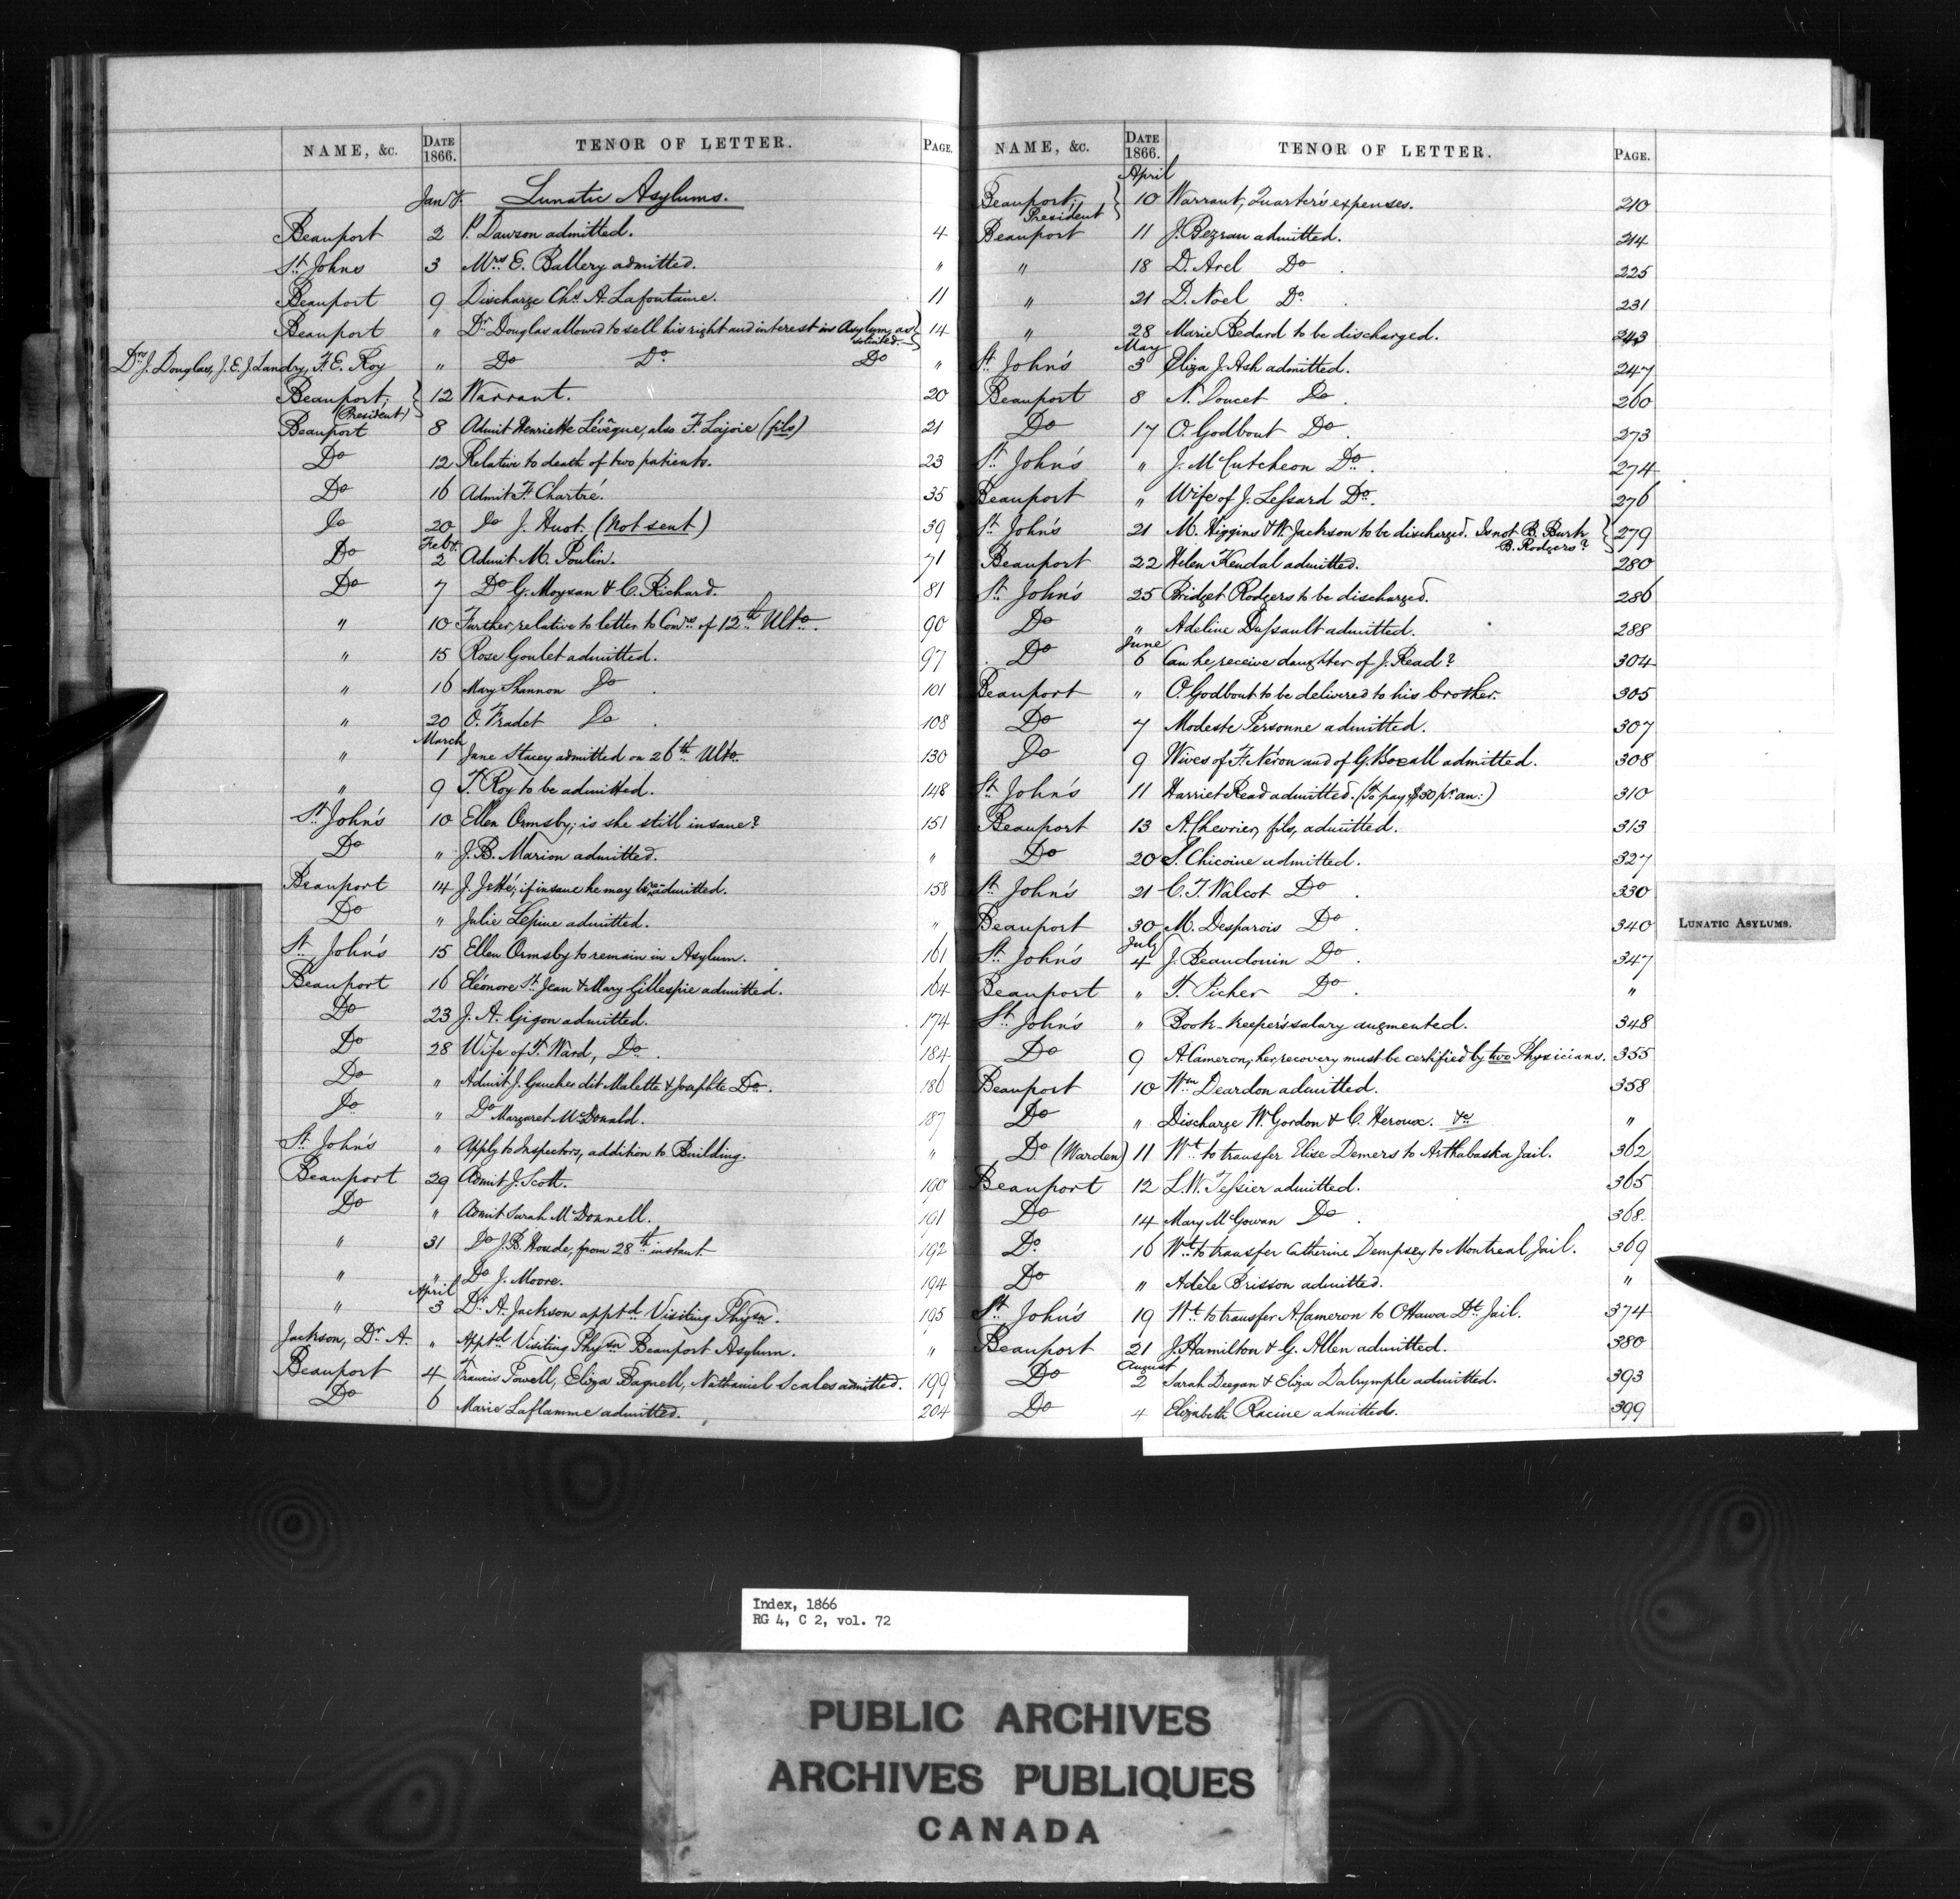 NAME, &c. DATE 1866. TENOR OF LETTER. PAGE.
Jany. Lunatic Asylums.
Beauport 2 P. Dawson admitted. 4
St. Johns 3 Mrs. E. Ballery admitted. "
Beauport 9 Discharge Chs. A. Lafontaine. 11
Beauport " Dr. Douglas allowed to sell his right and interest in Asylum, as solicited. 14
Drs. J. Douglas, J. E. J. Landry, F. E. Roy " Do Do Do "
Beauport, (President) 12 Warrant. 20
Beauport 8 Admit Henriette Lévêque, also F. Lajoie (fils) 21
Do 12 Relative to death of two patients. 23
Do 16 Admit F. Chartré. 35
Do 20 Do J. Huot. (Not sent) 39
Feby.
Do 2 Admit M. Poulin. 71
Do 7 Do G. Moysan & C. Richard. 81
" 10 Further, relative to letter to Comrs. of 12th Ulto. 90
" 15 Rose Goulet admitted. 97
" 16 Mary Shannon Do. 101
" 20 O. Fradet Do. 108
March
" 1 Jane Stacey admitted on 26th Ulto. 130
" 9 T. Roy to be admitted. 148
St. John's 10 Ellen Ormsby; is she still insane? 151
Do " J. B. Marion admitted. "
Beauport 14 J. Jetté; if insane he may be admitted. 158
Do " Julie Lepine admitted. "
St. John's 15 Ellen Ormsby to remain in Asylum. 161
Beauport 16 Eléonore St. Jean & Mary Gillespie admitted. 164
Do 23 J. A. Gigon admitted. 174
Do 28 Wife of T. Ward, Do. 184
Do " Admit J. Gauches dit Malette & Josephte Do. 186
Do " Do Margaret McDonald. 187
St. John's " Apply to Inspectors, addition to Building. "
Beauport 29 Admit J. Scott. 190
Do " Admit Sarah McDonnell. 191
" 31 Do J. B. Houde, from 28th instant 192
" " Do J. Moore. 194
April
" 3 Dr. A. Jackson apptd. Visiting Physn. 195
Jackson, Dr. A. " Apptd. Visiting Physn. Beauport Asylum. "
Beauport 4 Francis Powell, Eliza Bagnell, Nathaniel Scales admitted. 199
Do 6 Marie Laflamme admitted. 204
NAME, &c. DATE 1866. TENOR OF LETTER. PAGE.
April
Beauport, President 10 Warrant, Quarter's expenses. 210
Beauport 11 J. Bezeau admitted. 214
" 18 D. Arel Do. 225
" 21 D. Noel Do. 231
" 28 Marie Bedard to be discharged. 243
May
St. John's 3 Eliza J. Ash admitted. 247
Beauport 8 N. Doucet Do. 260
Do 17 O. Godbout Do. 273
St. John's " J. McCutcheon Do. 274
Beauport " Wife of J. Lessard Do. 276
St. John's 21 M. Higgins & W. Jackson to be discharged. Is not B. Burk B. Rodgers? 279
Beauport 22 Helen Kendal admitted. 280
St. John's 25 Bridget Rodgers to be discharged. 286
Do " Adeline Dussault admitted. 288
June
Do 6 Can he receive daughter of J. Read? 304
Beauport " O. Godbout to be delivered to his brother. 305
Do 7 Modeste Personne admitted. 307
Do 9 Wives of F. Néron and of G. admitted. 308
St. John's 11 Harriet Read admitted. (To pay $30 pr. an:) 310
Beauport 13 A. Chevrier, fils, admitted. 313
Do 20 S. Chicoine admitted. 327
St. John's 21 C. T. Walcot Do. 330
Beauport 30 M. Desparois Do. 340
July
St. John's 4 J. Beaudouin Do. 347
Beauport " T. Picher Do. "
St. John's " Book-keeper's salary augmented. 348
Do 9 A. Cameron, her recovery must be certified by two Physicians. 355
Beauport 10 Wm. Deardon admitted. 358
Do " Discharge W. Gordon & C. Heroux. &c. "
Do (Warden) 11 Wt. to transfer Elise Demers to Arthabaska Jail. 362
Beauport 12 L. W. Tessier admitted. 365
Do 14 Mary McGowan Do. 368.
Do. 16 Wt. to transfer Catherine Dempsey to Montreal Jail. 369
Do " Adèle Brisson admitted. "
St. John's 19 Wt. to transfer A. Cameron to Ottawa Dt. Jail. 374
Beauport 21 J. Hamilton & G. Allen admitted. 380
August
Do 2 Sarah Deegan & Eliza Dalrymple admitted. 393
Do 4 Elizabeth Racine admitted. 399
LUNATIC ASYLUMS.
Index, 1866
RG 4, C 2, vol. 72
PUBLIC ARCHIVES
ARCHIVES PUBLIQUES
CANADA